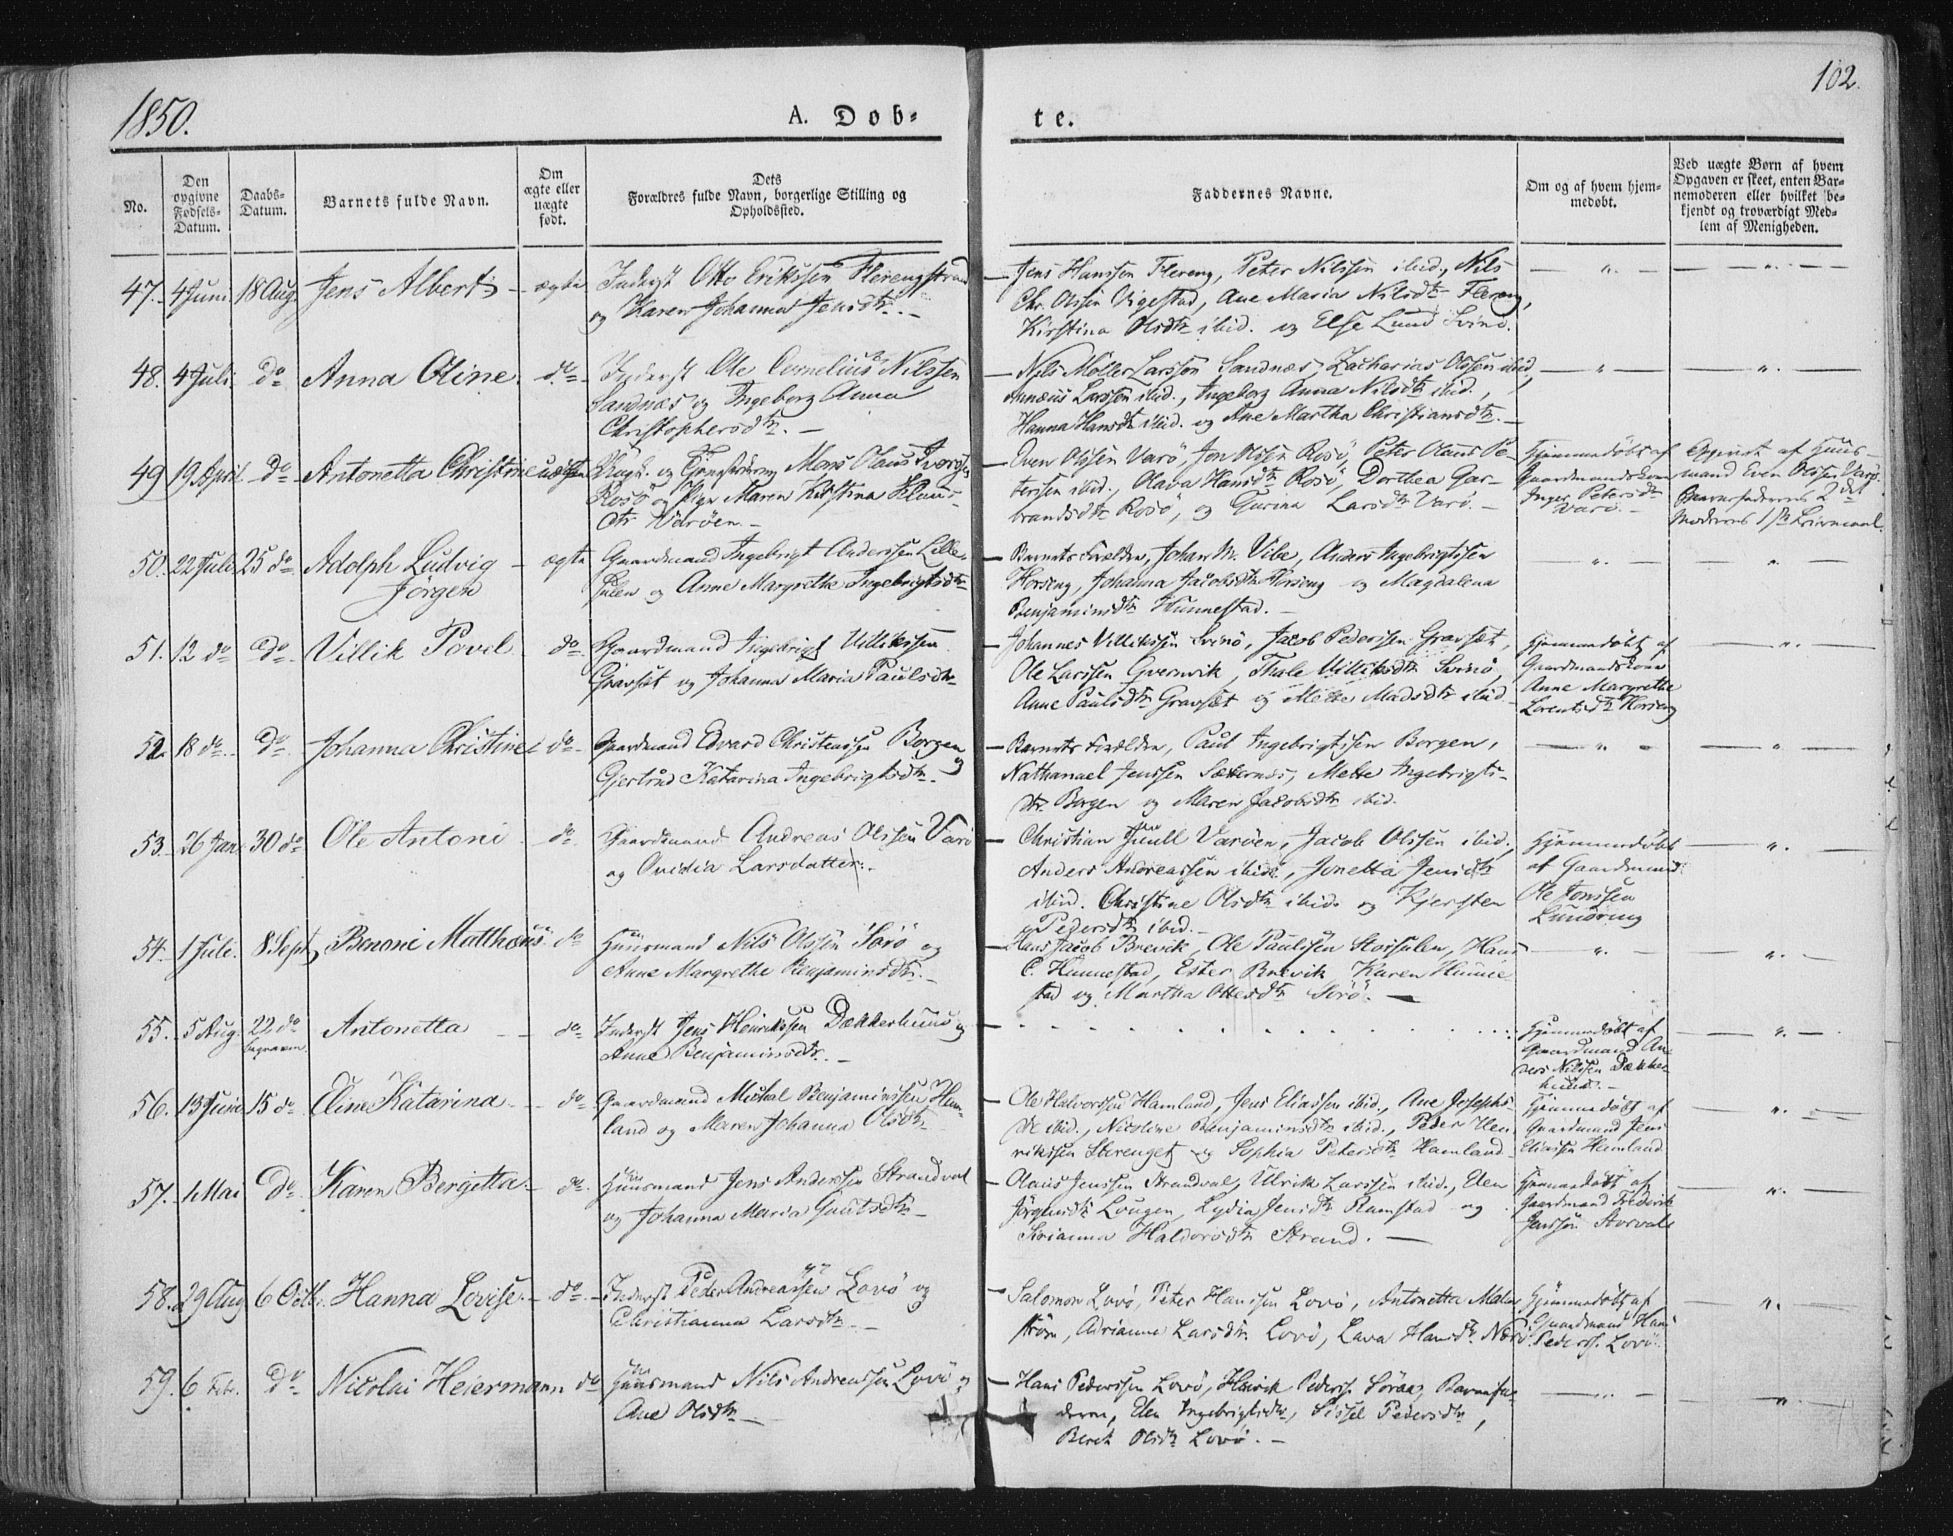 1850.
A. Døb-
te.
102.
No.
Den opgivne Fødsels-Datum.
Daabs-Datum.
Barnets fulde Navn.
Om ægte eller uægte født.
Dets Forældres fulde Navn, borgerlige Stilling og Opholdssted.
Faddernes Navne.
Om og af hvem hjem-
medøbt.
Ved uægte Børn af hvem
Opgaven er skeet, enten Bar-
nemoderen eller hvilket be-
kjendt og troværdigt Med-
lem af Menigheden.
47. 4 Juni 18 Aug. Jens Albert - ægte
Inderst Otto Erikssen Flerengstrand
og Karen Johanna Jensdtr. -
- Jens Hanssen Flereng, Peter Nilssen ibid., Nils
Chr. Olssen Vigestad, Ane Maria Nilsdtr Flereng,
Kirstina Olsdtr ibid. og Else Lund Svinö.
48. 4 Juli. do Anna Oline. do
Inderst Ole Cornelius Nilssen
Sandnæs og Ingeborg Anna
Christophersdtr. -
- Nils Möller Larssen Sandnæs, Zacharias Olssen ibid,
Larssen ibid., Ingeborg Anna Nilsdtr ibid.,
Hanna Hansdtr ibid. og Ane Martha Christiansdtr. -
49 19 April do Antonetta Christine uægte
og Mons Olaus Iverssen
Rosö og Pige Maren Kirstina
dtr Væröen. -
- Even Olssen Varö, Jon Olssen Rosö, Peter Olaus Pe-
terssen ibid., Olava Hansdtr Rosö, Dorthea Gar-
brandsdtr Rosö, og Gurina Larsdtr Varö. -
Hjemmedöbt af
Gaardmandskone
Inger Petersdtr
Varö. -
af Huus-
mand Even Olssen Varö.
Barnefaderens 2det
Moderens 1ste Leiermaal.
50. 22 Juli 25 do Adolph Ludvig
Jörgen - ægte
Gaardmand Ingebrigt Anderssen Lille-
sulen og Anne Margrethe Ingebrigtsdtr
- Barnets Forældre, Johan M. Vibe, Anders Ingebrigtssen
Horseng, Johanna Jacobsdtr Horseng og Magdalena
Benjaminsdtr Hunnestad. -
51. 12 do do Villik Povel do
Gaardmand Ingebrigt Villikssen
Gravset og Johanna Maria Paulsdtr
- Johannes Villikssen Svinö, Jacob Pederssen Gravset,
Ole Larssen Gvernvik, Thale Villiksdtr Svinö,
Anne Paulsdtr Gravset og Mette Madsdtr ibid
Hjemmedöbt af
Gaardmandskone
Anne Margrethe
Lorentsdtr Horseng
52. 18 do do Johanna Christine do
Gaardmand Edvard Christenssen Borgen
og
Gjertrud Katarina Ingebrigtsdtr.
- Barnets Forældre, Paul Ingebrigtssen Borgen,
Nathanael Jenssen Sætternes, Mette Ingebrigts-
dtr Borgen og Maren Jacobsdtr ibid.
53. 26 Jan 30 do Ole Antoni do
Gaardmand Andreas Olssen Varö
og Ovidia Larsdatter. -
- Christian Juull Varöen, Jacob Olssen ibid.,
Anders Andreassen ibid., Jonetta Jensdtr
ibid. Christine Olsdtr ibid. og Kjersten
Pedersdtr ibid. -
Hjemmedöbt
af Gaardmand
Ole Jonssen
Lundring
54. 1 Juli. 8 Sept, Benoni Matthæus do
Huusmand Nils Olssen Sorö og
Anne Margrethe Benjaminsdtr. -
- Hans Jacob Brevik, Ole Paulssen Storsulen, Hans
C. Hunnestad, Ester Brevik, Karen Hunne-
stad og Martha Ottesdtr Sorö. -
55. 5 Aug 22 do
begraven. Antonetta - do
Inderst Jens Henrikssen Dækkerhuus og
Anne Benjaminsdtr. -
Hjemmedöbt af
Gaardmand An-
ders Nilssen Dækker-
huus. -
56. 13 Juni 15 do Eline Katarina. - do
Gaardmand Michal Benjaminssen Ham-
land og Maren Johanna Olsdtr
- Ole Halvorssen Hamland, Jens Eliassen ibid., Ane Josephs-
dtr ibid., Nicoline Benjaminsdtr ibid., Peder Hen-
rikssen Sterenget og Sophia Petersdtr Hamland
Hjemmedöbt af
Gaardmand Jens
Eliassen Hamland
57. 1 Mai do Karen Bergitta - do.
Huusmand Jens Anderssen Strandval
og Johanna Maria Gautsdtr
- Olaus Jenssen Strandval, Ulrik Larssen ibid., Elen
Jörgensdtr Lougen, Lydia Jensdtr Ramstad og
Sirianna Haldorsdtr Strand. -
Hjemmedöbt af
Gaardmand Frederik
Jenssen Storvale
58. 29 Aug 6 Octb. Hanna Lovise. - do
Inderst Peder Andreassen Lovö og
Christianna Larsdtr. -
- Salomon Lovö, Peter Hanssen Lovö, Antonetta Malm-
ström, Adrianna Larsdtr Lovö, Lava Hansdtr Nærö.
Hjemmedöbt af
Gaardmand Hans
Pederss. Lovö.
59. 6 Febr. do Nicolai Heiermann do
Huusmand Nils Andreassen Lovö og
Ane Olsdtr -
- Hans Pederssen Lovö, Henrik Pederss. Söraa, Barnefa-
deren, Elen Ingebrigtsdtr, Sissel Pedersdtr,
Beret Olsdtr Lovö. -